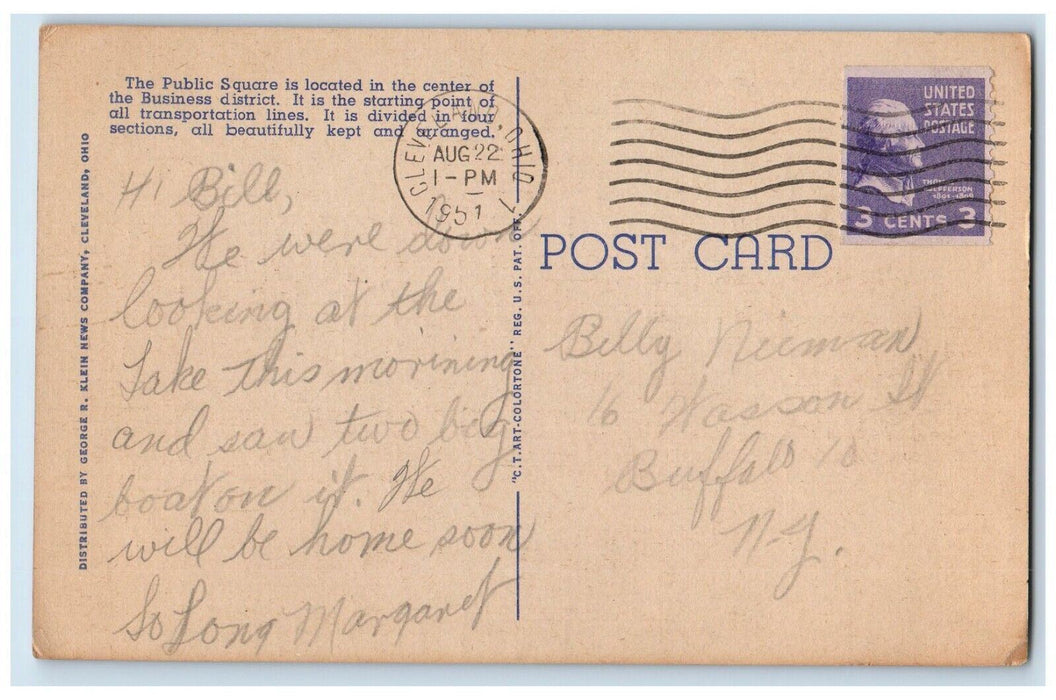 The Public Square is located in the center of
the Business district. It is the starting point of
all transportation lines. It is divided in four
sections, all beautifully kept and arranged.
CLEVELAND, OHIO
AUG 22
1-PM
1951
UNITED
STATES
POSTAGE
THOMAS
JEFFERSON
1801-1809
3 CENTS 3
POST CARD
DISTRIBUTED BY GEORGE R. KLEIN NEWS COMPANY, CLEVELAND, OHIO
"C.T. ART-COLORTONE" REG. U.S. PAT. OFF.
Hi Bill,
We were down
looking at the
Lake this morining
and saw two big
boat on it. We
will be home soon
So Long Margaret
Billy Nieman
16 Wasson St
Buffalo 10
N.Y.